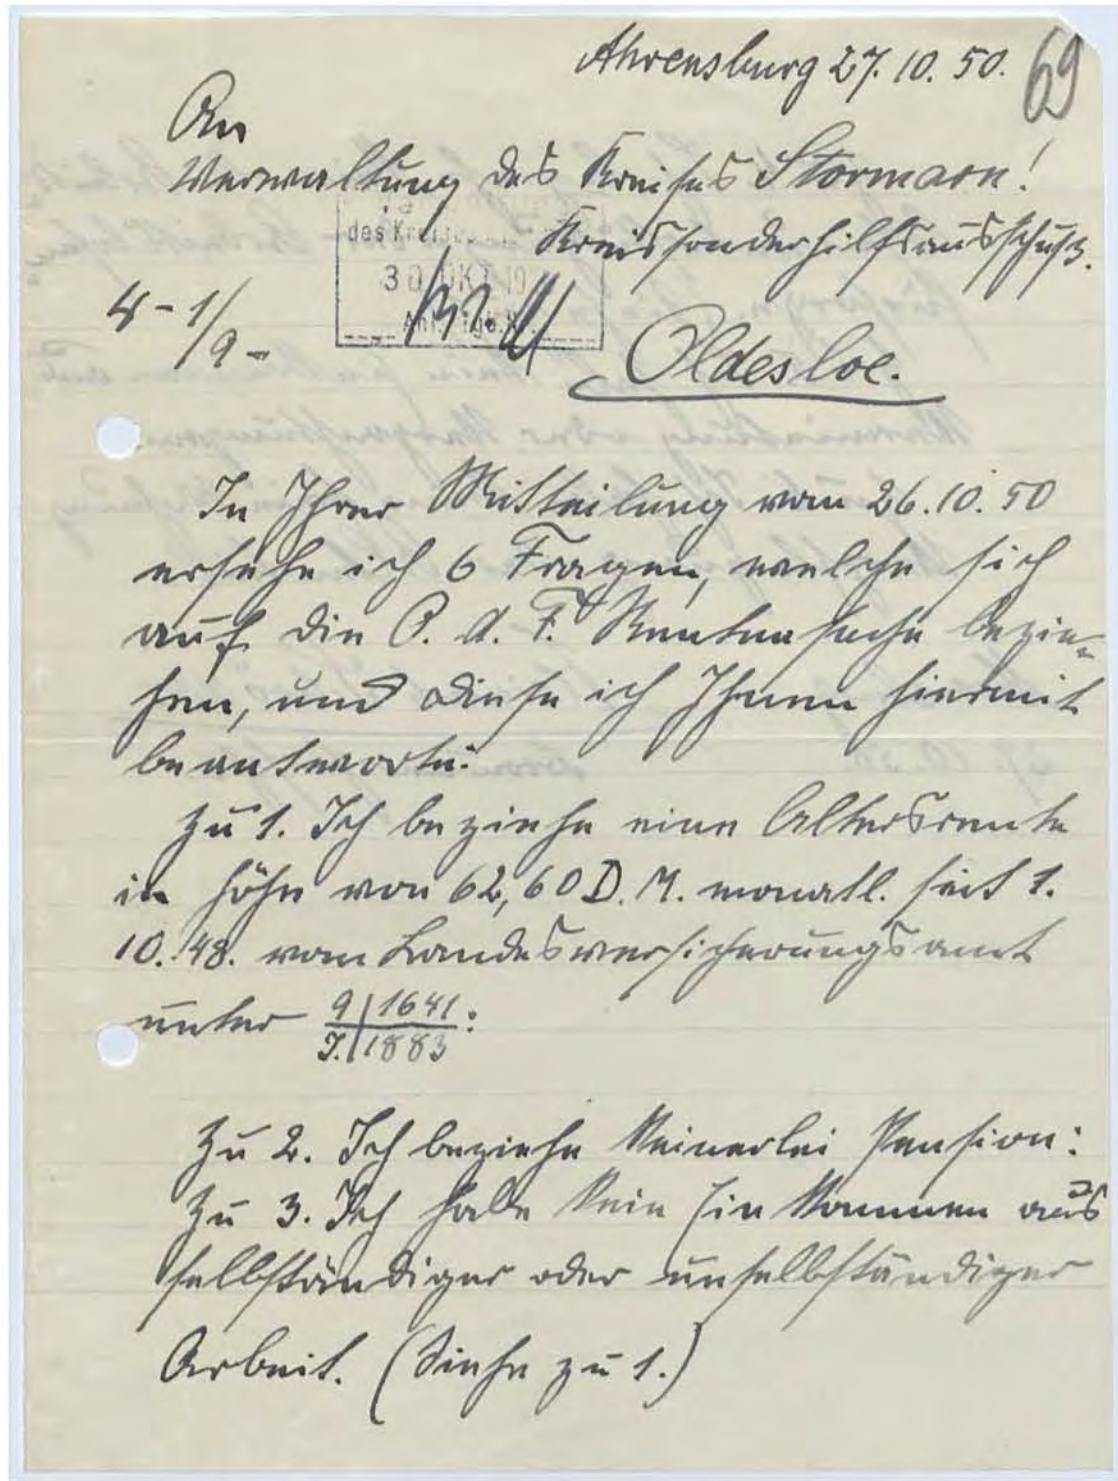 Ahrensburg 27.10.50.
69
An
Verwaltung des Kreises Stormarn!
des Kreis
Kreissonderhilfsausschuß.
30 OKT 19
4-1/9-
Oldesloe.
In Ihrer Mitteilung vom 26.10.50
ersehe ich 6 Fragen, welche sich
auf die O. d. F. Rentensache bezie-
hen, und diese ich Ihnen hiermit
beantworte:
Zu 1. Ich beziehe eine Altersrente
in Höhe von 62,60 D.M. monatl. seit 1.
10.48. vom Landesversicherungsamt
unter 9/1641
J./1883:
Zu 2. Ich beziehe keinerlei Pension:
Zu 3. Ich habe kein Einkommen aus
selbständiger oder unselbständiger
Arbeit. (Siehe zu 1.)